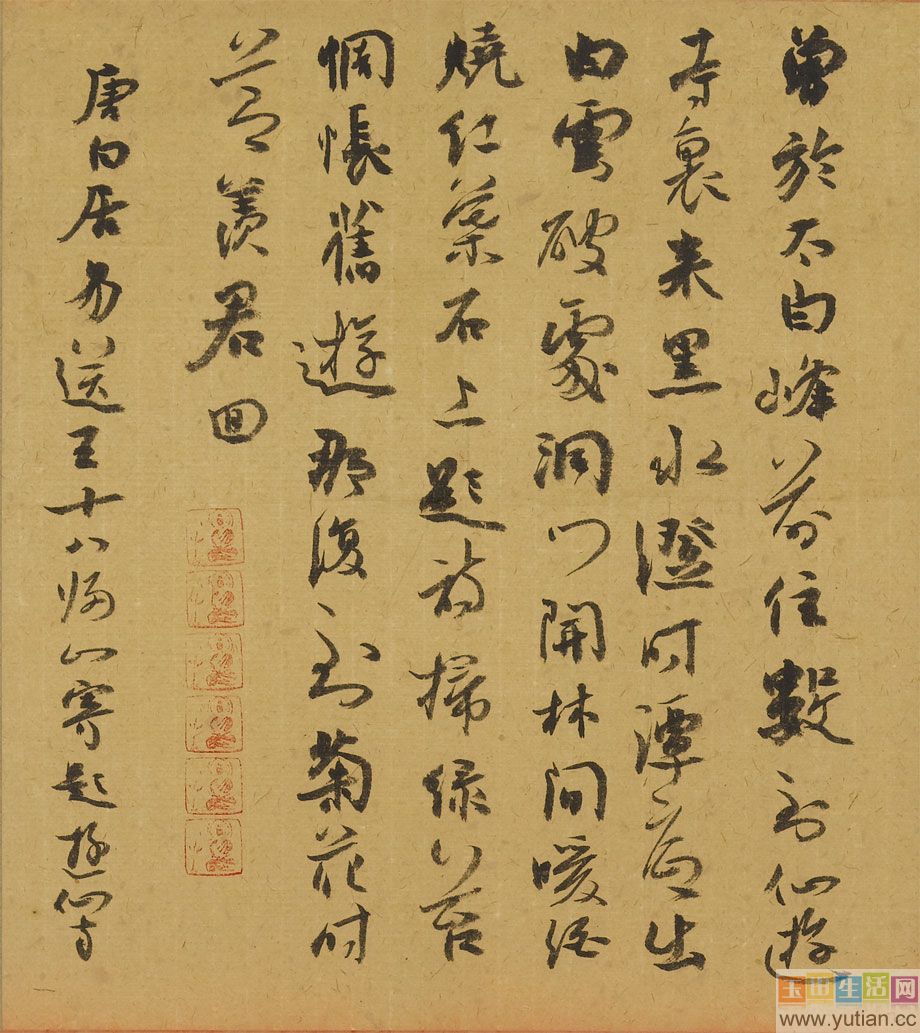 曾於太白峰前住數到仙遊
寺裏来黑水澄時潭底出
白雲破處洞門開林間暖酒
燒紅葉石上題詩掃綠苔
惆悵舊遊那復到菊花時
節羨君回
唐白居易送王十八歸山寄題遊仙寺
玉田生活网
www.yutian.cc